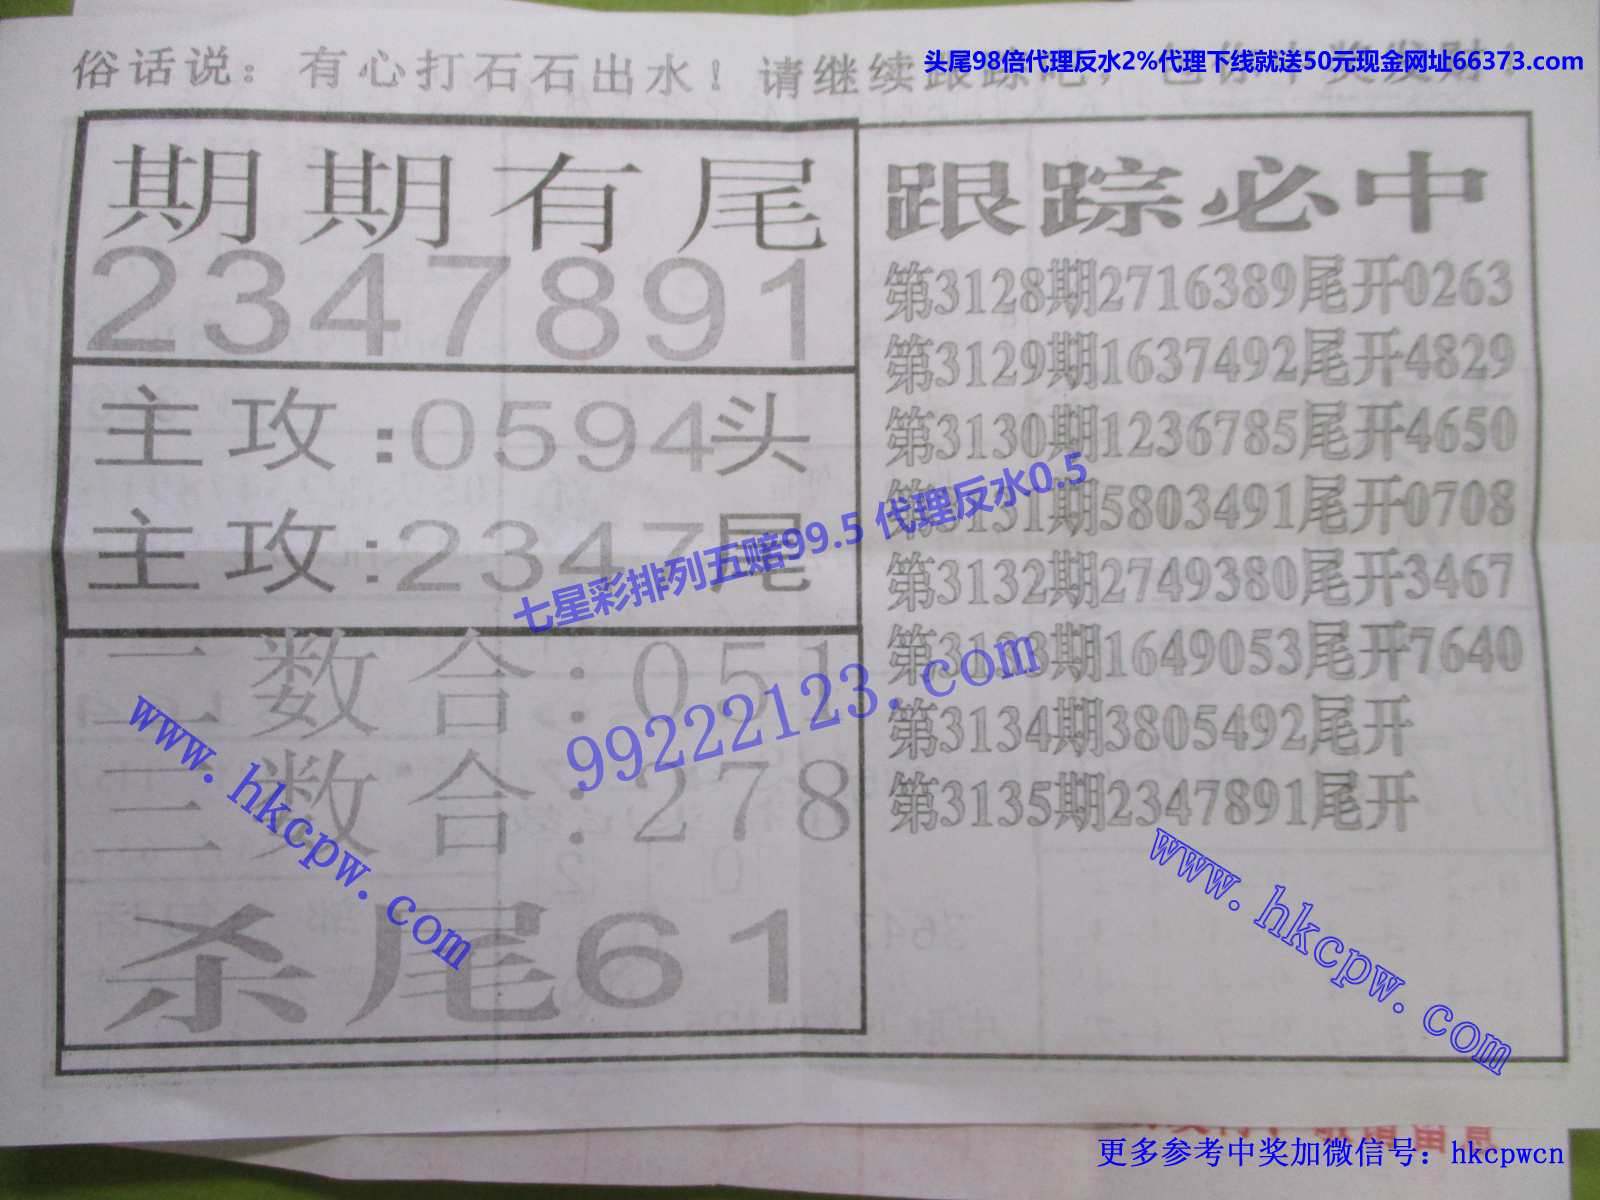 俗话说：有心打石石出水！请继续跟踪吧，包你中奖发财！
头尾98倍代理反水2%代理下线就送50元现金网址66373.com
期期有尾
2347891
主攻:0594头
主攻:2347尾
二数合:051
三数合:278
杀尾61
跟踪必中
第3128期2716389尾开0263
第3129期1637492尾开4829
第3130期1236785尾开4650
第3131期5803491尾开0708
第3132期2749380尾开3467
第3133期1649053尾开7640
第3134期3805492尾开
第3135期2347891尾开
七星彩排列五赔99.5 代理反水0.5
99222123.com
www.hkcpw.com
www.hkcpw.com
更多参考中奖加微信号：hkcpwcn